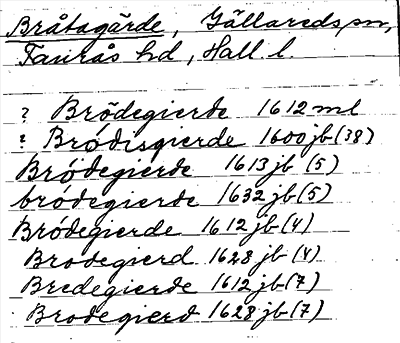 Bråtagärde, Gällareds sn,
Faurås hd, Hall. l.
? Brödegierde 1612 ml
? Bródisgierde 1600 jb (38)
Bródegierde 1613 jb (5)
bródegierde 1632 jb (5)
Bródegierde 1612 jb (4)
Brodegierd 1628 jb (4)
Bredegierde 1612 jb (7)
Brodegierd 1628 jb (7)